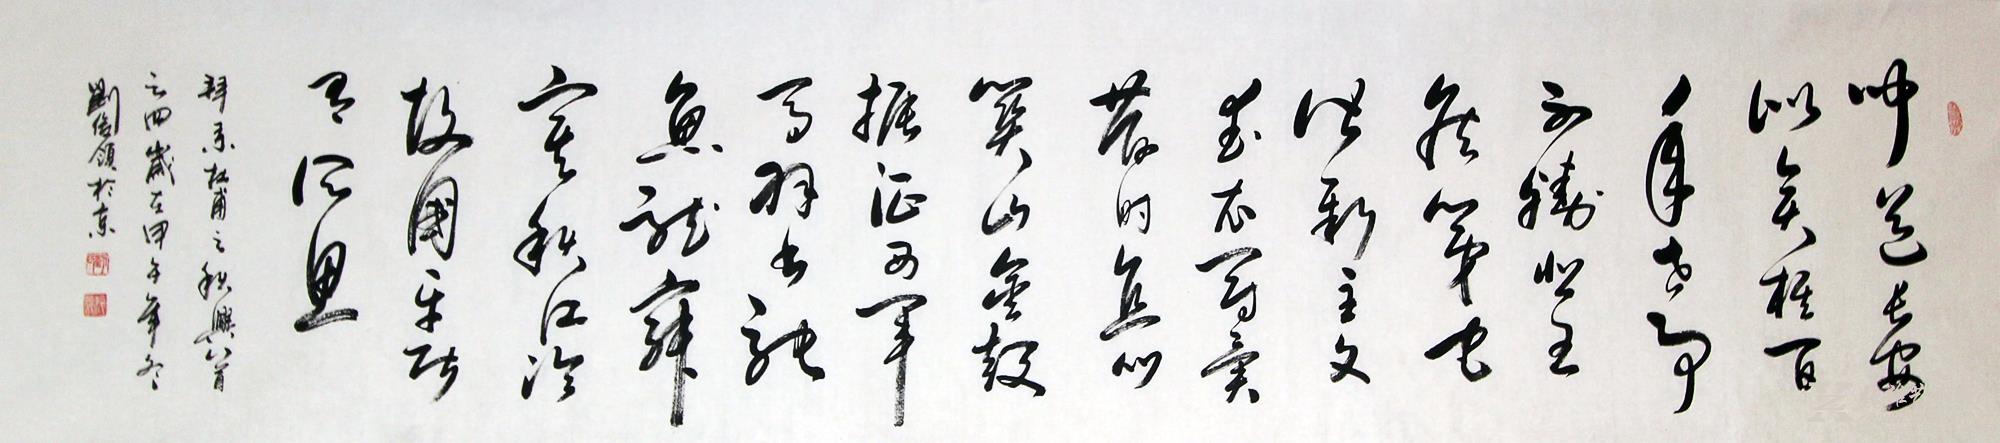 聞道長安
似弈棋百
年世事
不勝悲王
侯第宅
皆新主文
武衣冠異
昔時直北
關山金鼓
振征西車
馬羽書馳
魚龍寂
寞秋江冷
故國平居
有所思
拜录杜甫之秋興八首
之四歲在甲午年冬
劉俊領於京